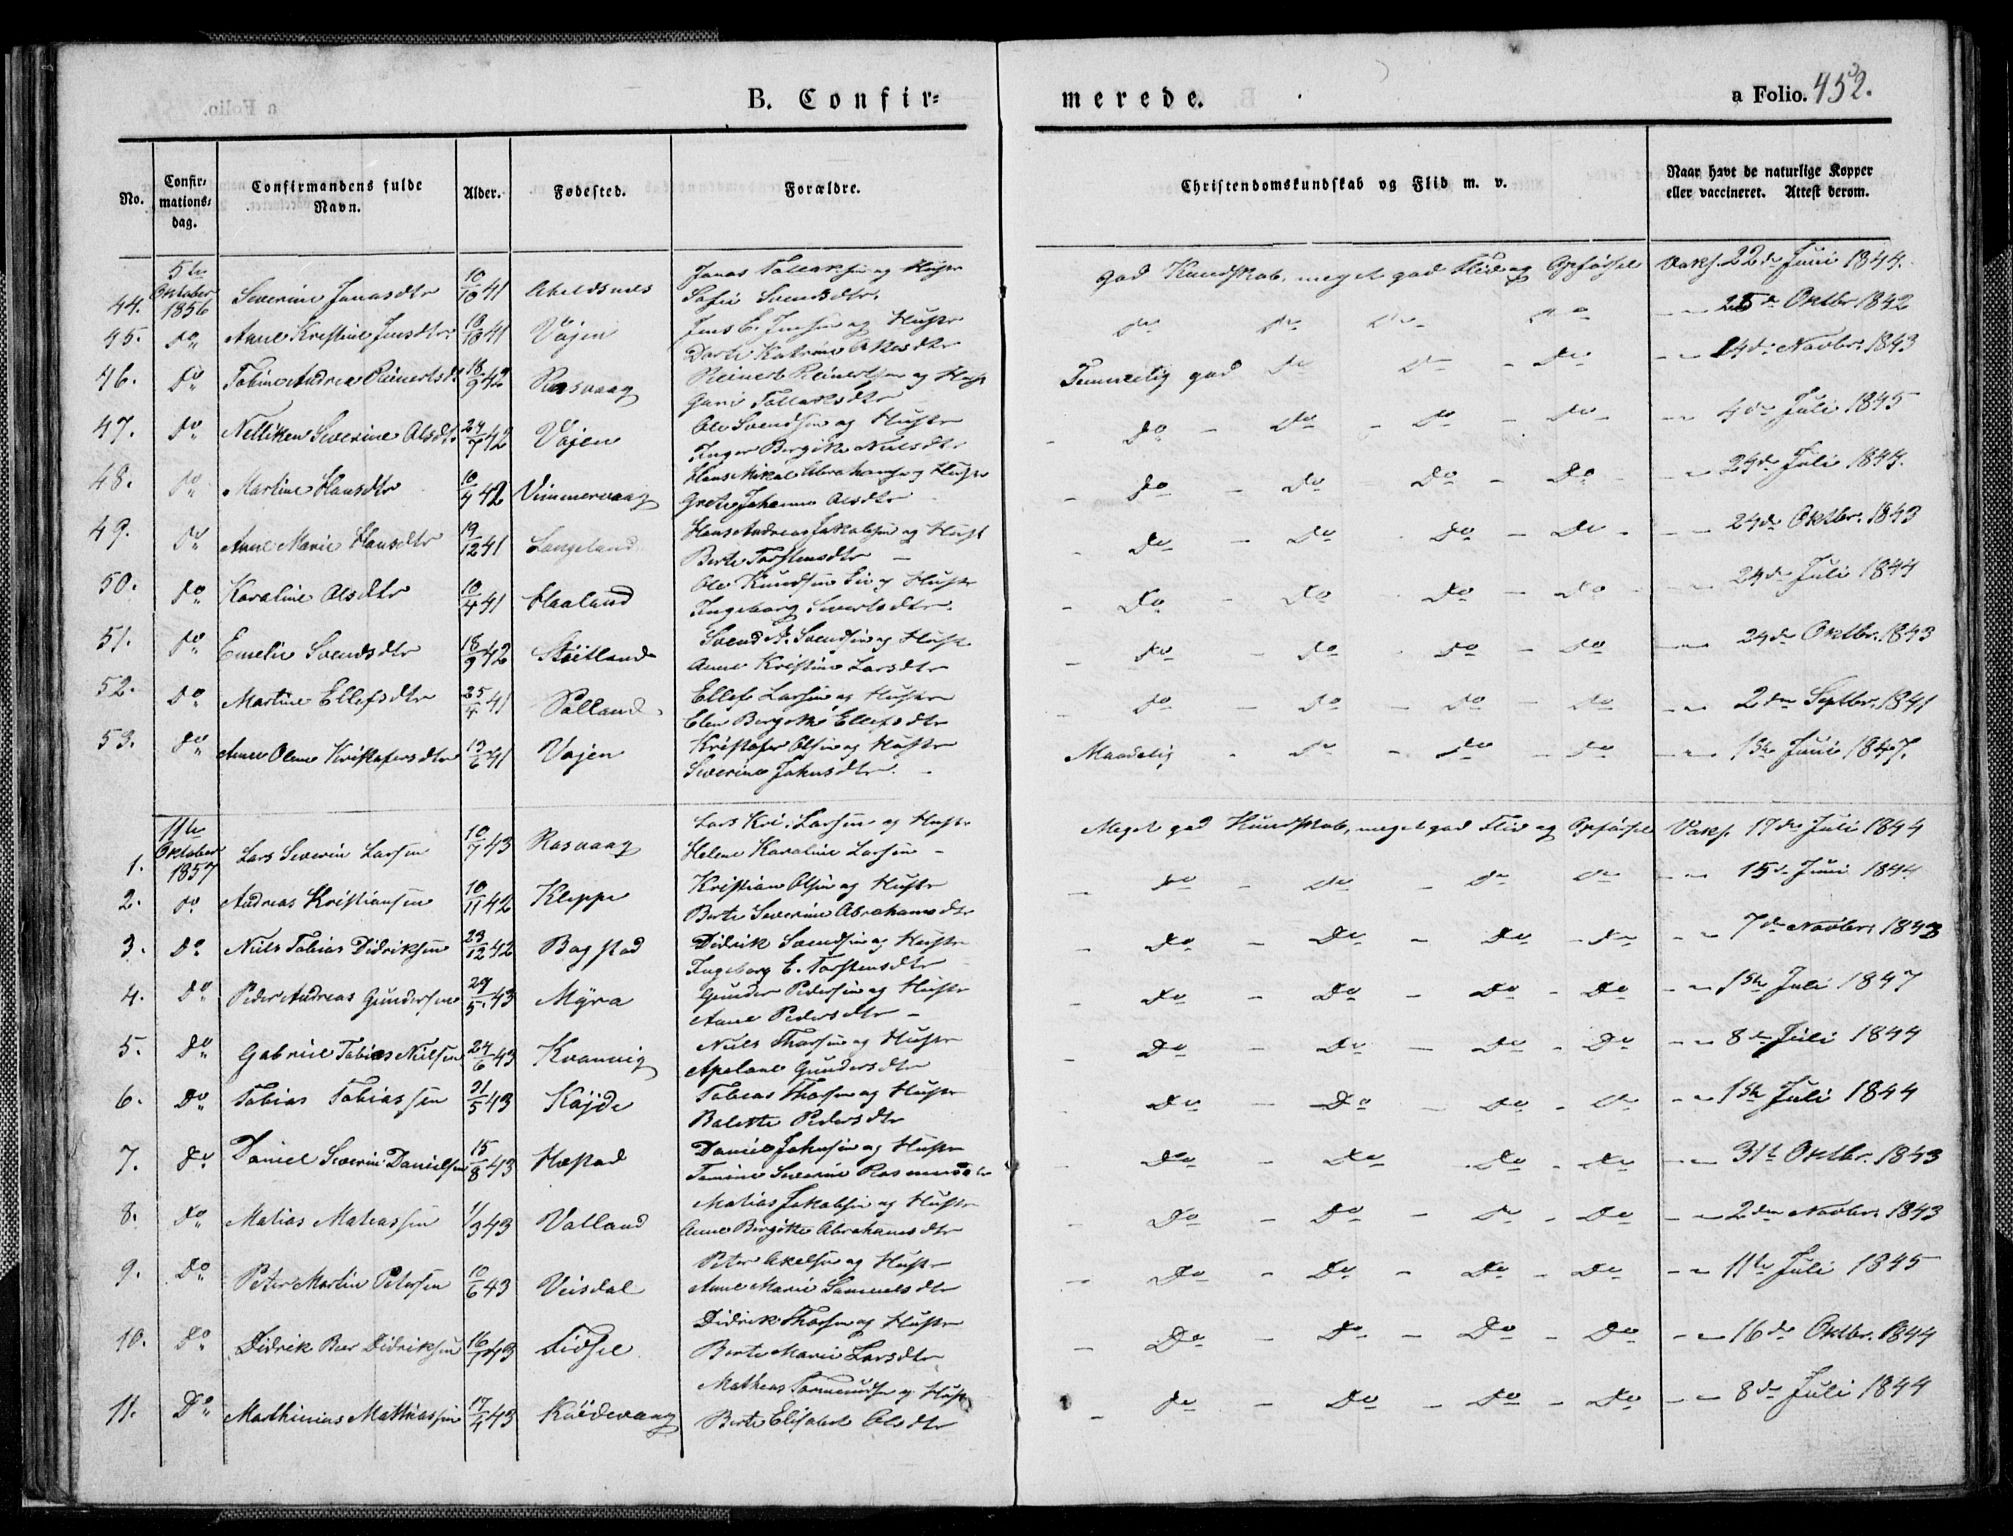 B. Confir=
merede.
a Folio. 452.
No.
Confir=
mations=
dag.
Confirmandens fulde
Navn.
Alder.
Fødested.
Forældre.
Christendomskundskab og Flid m. v.
Naar havt de naturlige Kopper
eller vaccineret. Attest derom.
5te Oktober 1856
44. Severine Jonasdtr 10/10 41 Abelsnes Jonas Tollaksen og Hustr
Sofie Svendsdtr. God Kundskab, meget god Flid og Opførsel Vaks. 22de Juni 1844.
45. do Anne Kristine Jensdtr 18/10 41 Vøjen Jens C. Jensen og Hustr
Dorte Katrine do do do do 25de Oktbr 1842
46. Do Tobine Andrea Reinertsdtr 18/9 42 Rasvaag Reinert Reinertsen og Hustr
Guri Tollaksdtr Temmelig god do do Do 24de Novbr. 1843
47. do Nelliken Severine Olsdtr 24/7 42 Vøjen Ole Svendsen og Hustr
Inger Bergitte Nielsdtr Do Do Do Do 4de Juli 1845
48. do Martine Hansdtr 10/4 42 Vimmervaag Hans Mikal Abrahamsen og Hustr
Grete Johanne Olsdtr Do Do Do Do 24de Juli 1844.
49. do Anne Marie Hansdtr 19/12 41 Langeland Hans Andreas Jakobsen og Hustr
Berte Torstensdtr Do Do Do Do 24de Oktbr. 1843
50. do Karoline Olsdtr 10/4 41 Haaland Ole Knudsen og Hustr
Ingeborg Sivertsdtr. Do Do Do Do 24de Juli 1844
51. do Emelie Svendsdtr 18/9 42 Støitland Svend A. Svendsen og Hustr
Anne Kristine Larsdtr Do Do Do Do 24de Oktbr. 1843
52. Do Martine Ellefsdtr 25/5 41 Salland Ellef Larsen og Hustr
Elen Bergitte Ellefsdtr Do Do Do Do 2den Septbr. 1841
53. Do Anne Oline Kristofersdtr 19/6 41 Vøjen Kristofer Olsen og Hustr
Severine Johnsdtr. Maadelig Do Do Do 1ste Juni 1847.
11te Oktober 1857
1. Lars Severin Larsen 10/7 43 Rasvaag Lars Kri. Larsen og Hustr
Helene Karoline Larsen Meget god Kundskab, meget god Flid og Opførsel Vaks. 17de Juli 1844
2. do Andreas Kristiansen 10/11 42 Kleppe Kristian Olsen og Hustr
Berte Severine Abrahamsdtr do do do do 15de Juni 1844
3. Do Niels Tobias Didriksen 23/12 42 Bagstad Didrik Svendsen og Hustr
Ingeborg E. Torstensdtr Do Do Do Do 7de Novbr. 1843
4. Do Peder Andreas Gundersen 29/5 43 Myra Gunder Pedersen og Hustr
Anne Pedersdtr Do Do Do Do 1ste Juli 1847
5. Do Gabriel Tobias Nielsen 24/6 43 Kvannig Niels Thorsen og Hustr
Apelone Gundersdtr Do Do Do Do 8de Juli 1844
6. Do Tobias Tobiassen 21/5 43 Køjde Tobias Thorsen og Hustr
Balette Pedersdtr Do Do Do Do 1ste Juli 1844
7. Do Daniel Severin Danielsen 15/8 43 Hæstad Daniel Johnsen og Hustr
Tomine Severine Rasmusdtr Do Do Do Do 31te Oktbr. 1843
8. Do Matias Matiassen 1/3 43 Valland Matias Jakobsen og Hustr
Anne Birgitte Abrahamsdtr Do Do Do Do 2den Novbr. 1843
9. Do Peter Martin Petersen 10/6 43 Veisdal Peter Akelsen og Hustr
Anne Marie Samuelsdtr Do Do Do Do 11te Juli 1845
10. Do Didrik Beer Didriksen 16/7 43 Didrik Thorsen og Hustr
Berte Marie Larsdtr Do Do Do Do 16de Oktbr. 1844
11. Do Mathinius Mathiassen 17/4 43 Køidevaag Mathias Tønnesen og Hustr
Berte Elisabet Olsdtr do Do Do Do 8de Juli 1844